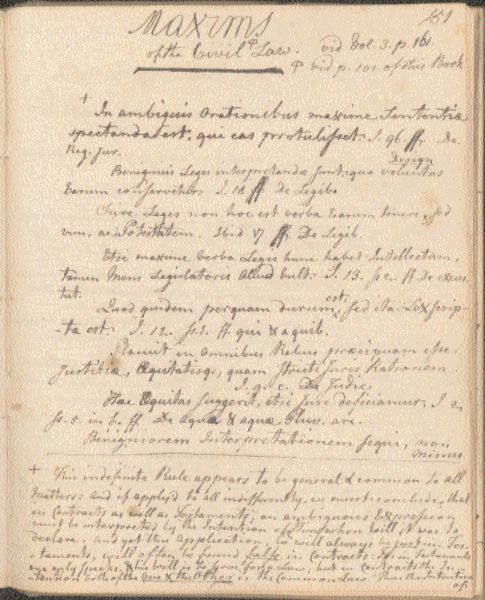 Maxims 151
of the Civil Φ Law. vid Vol. 3. p. 161.
Φ vid p. 101 of this Book
+
In ambiguis Orationibus maxime Sententia
spectanda est, qui eas protulisset. l. 96. ff. De
Reg. Jur.
Design
Benignius Leges interpretandæ sunt, quo voluntas
Earum conservetur. l. 18 ff De Legibs
Scire Leges non hoc est verba Earum tenere, sed
vim, ac Potestatem. Ibid 17 ff. De Legib.
Etsi maxime verba Legis hunc habet Intellectum,
tamen Mens Legislatoris Aliud vult. l. 13. §2. ff De excus.
tut.
est,
Quod quidem perquam durum, sed ita Lex scrip-
ta est. l. 12. §1. ff qui & a quib.
Placuit in Omnibus Rebus præcipuam esse
Justitiæ, Æquitatisq., quam stricti Juris Rationem.
l. 8. c. De Judic.
Hæc Æquitas suggerit, etsi Jure deficiamur. l. 2.
§. 5. in f. ff De aqua & aquæ Pluv. arc.
Benigniorem Interpretationem sequi, non
minus
+ This indefinite Rule appears to be general & common to all
Matters: and if applyd to all indifferently, we must conclude, that
in Contracts as well as Testaments, an ambiguous Expression
must be interpreted by the Intention of Him whose Will it was to
declare. and yet this Application, will always be just in Tes-
taments, will often be found False in Contracts: for in Testaments
one only speaks, & his will is to serve for a Law, but in Contracts the In-
tention both of the One & the Other is the Common Law. Thus the Intention
of